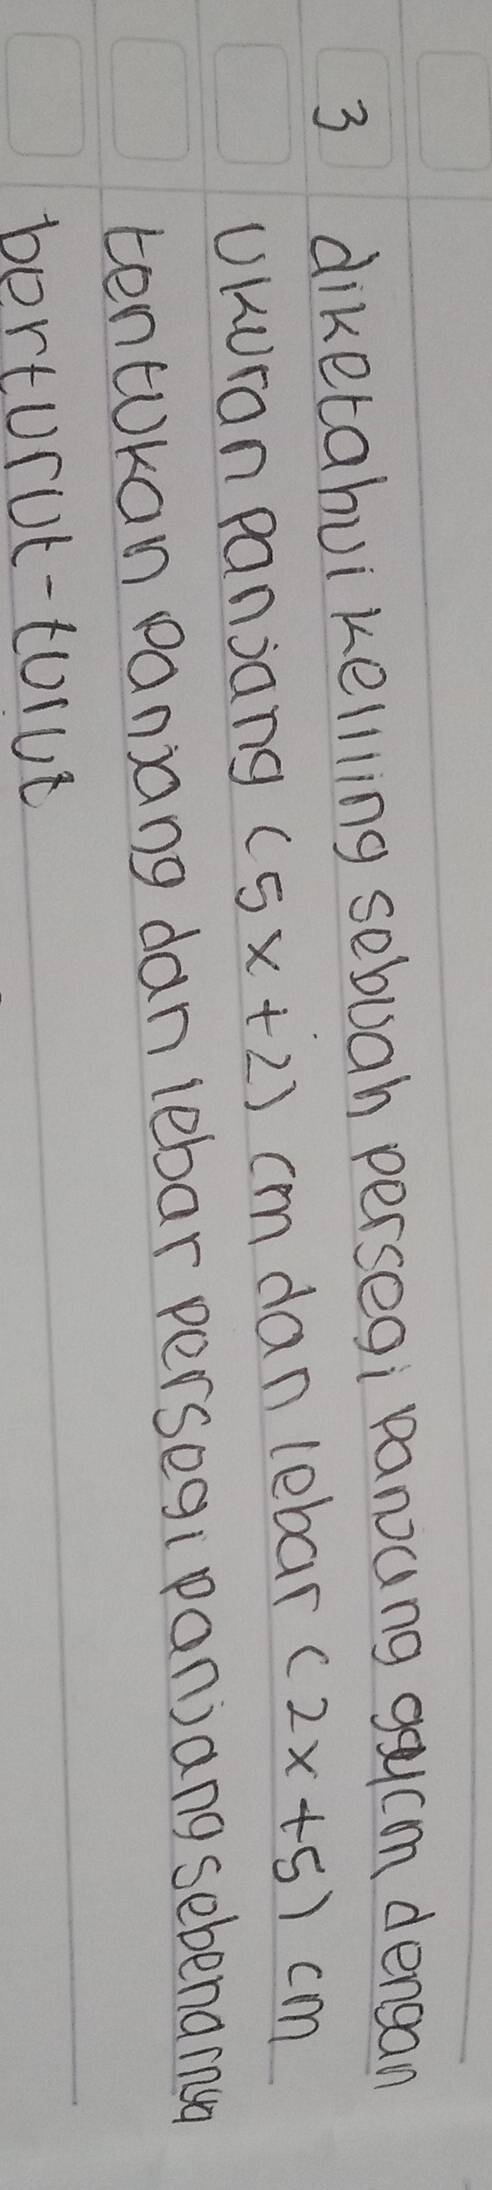 3 diketahui keliling sebuah persegi panjang cm dengan
ukuran panjang (5x+2) cm dan lebar (2x+5) cm
tentukan panjang dan lebar persegi panjang sebenarnya
berturut-turut